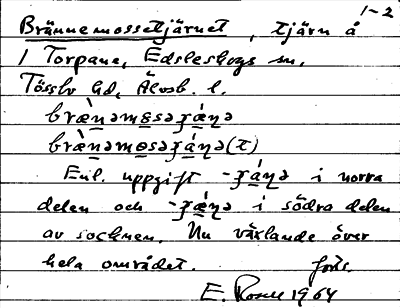 1-2
Brännemossetjärnet, tjärn å
1 Torpane, Edsleskogs sn,
Tössbo hd, Älvsb. l.
bræ̀nəmɵsəʂǽɳə
bræ̀nəmɵsəʂǽɳə(t)
Enl. uppgift -ʂǽɳə i norra
delen och -ʂǽɳə i södra delen
av socknen. Nu växlande över
hela området. forts.
E. 1964